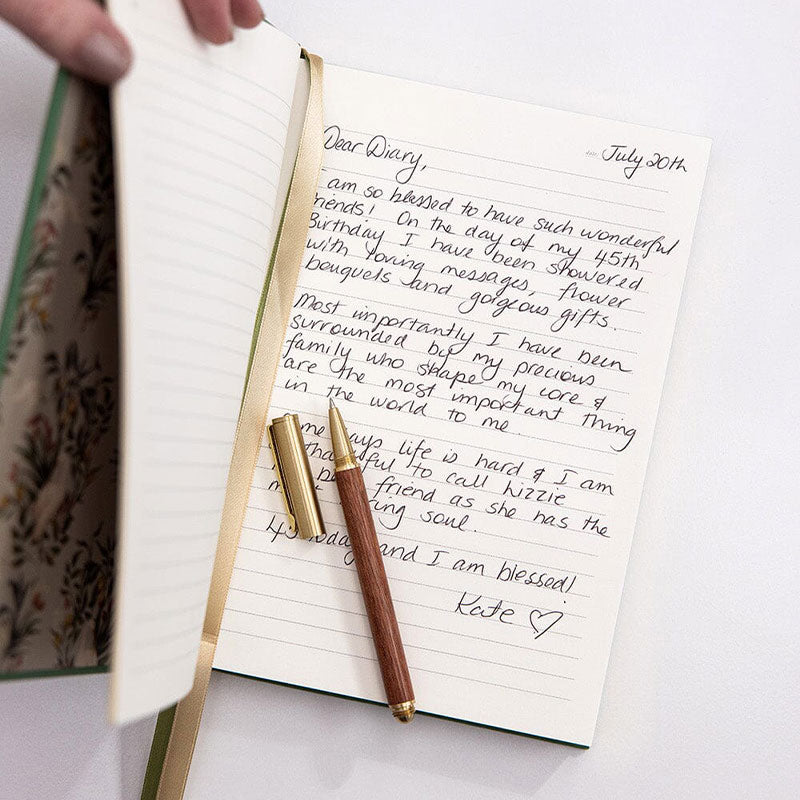 July 20th
Dear Diary,
I am so blessed to have such wonderful
friends! On the day of my 45th
Birthday I have been showered
with loving messages, flower
bouquets and gorgeous gifts.
Most importantly I have been
surrounded by my precious
family who shape my core &
are the most important thing
in the world to me.
Some days life is hard & I am
thankful to call Lizzie
my friend as she has the
soul.
45 today and I am blessed!
Kate ♡